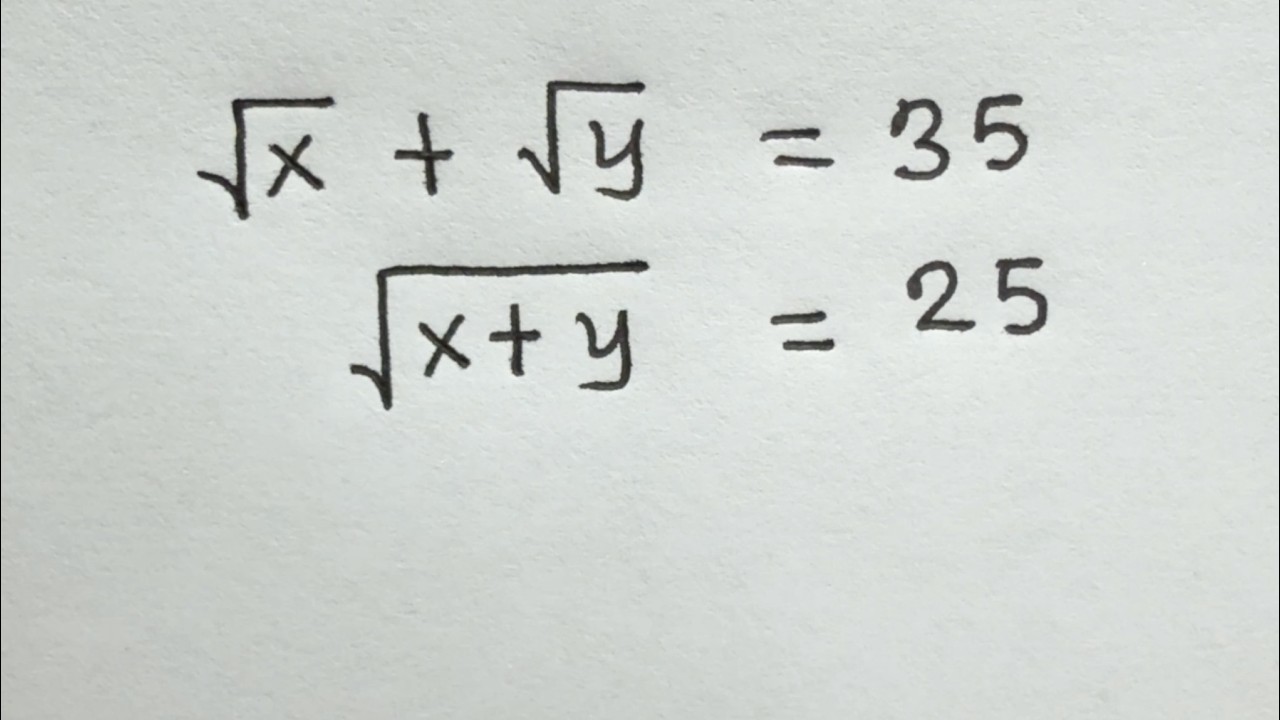 √x + √y = 35
√(x+y) = 25